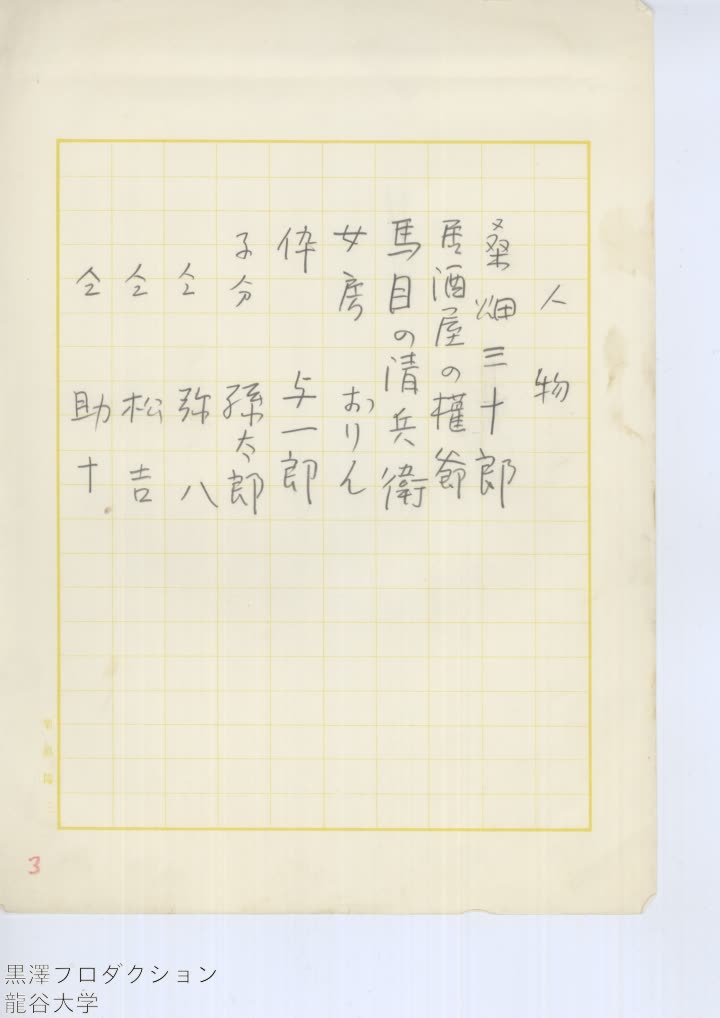 人物
桑畑三十郎
居酒屋の権爺
馬目の清兵衛
女房 おりん
伜 与一郎
子分 孫太郎
仝 弥八
仝 松吉
仝 助十
3
黒澤プロダクション
龍谷大学